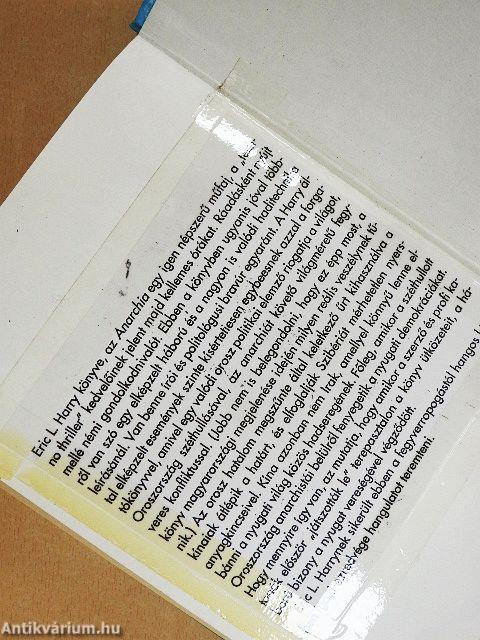 Eric L. Harry könyve, az Anarchia egy igen népszerű műfaj, a „tech-
no thriller” kedvelőinek jelent majd kellemes órákat. Ráadásként nyújt
mellé némi gondolkodnivalót. Ebben a könyvben ugyanis jóval több-
ről van szó egy elképzelt háború és a nagyon is valódi haditechnika
leírásánál. Van benne írói és politológusi bravúr egyaránt. A Harry ál-
tal elképzelt események szinte kísértetiesen egybeesnek azzal a forga-
tókönyvvel, amivel egy valódi orosz politikai elemző riogatja a világot,
Oroszország széthullásával, az anarchiát követő világméretű fegy-
veres konfliktussal. (Jobb nem is belegondolni, hogy ez épp most, a
könyv magyarországi megjelenése idején milyen reális veszélynek tű-
nik.) Az orosz hatalom megszűnte által keletkező űrt kihasználva a
kínaiak átlépik a határt, és elfoglalják Szibériát mérhetetlen nyers-
anyagkincseivel. Kína azonban nem Irak, amellyel könnyű lenne el-
bánni a nyugati világ közös hadseregének. Főleg, amikor a széthullott
Oroszország anarchistái belülről fenyegetik a nyugati demokráciákat.
Hogy mennyire így van, az mutatja, hogy amikor a szerző és profi ka-
tonák először „játszották le” terepasztalon a könyv ütközeteit, a há-
ború bizony a nyugat vereségével végződött.
Eric L. Harrynek sikerült ebben a fegyverropogástól hangos
medvége hangulatot teremteni.
Antikvárium.hu